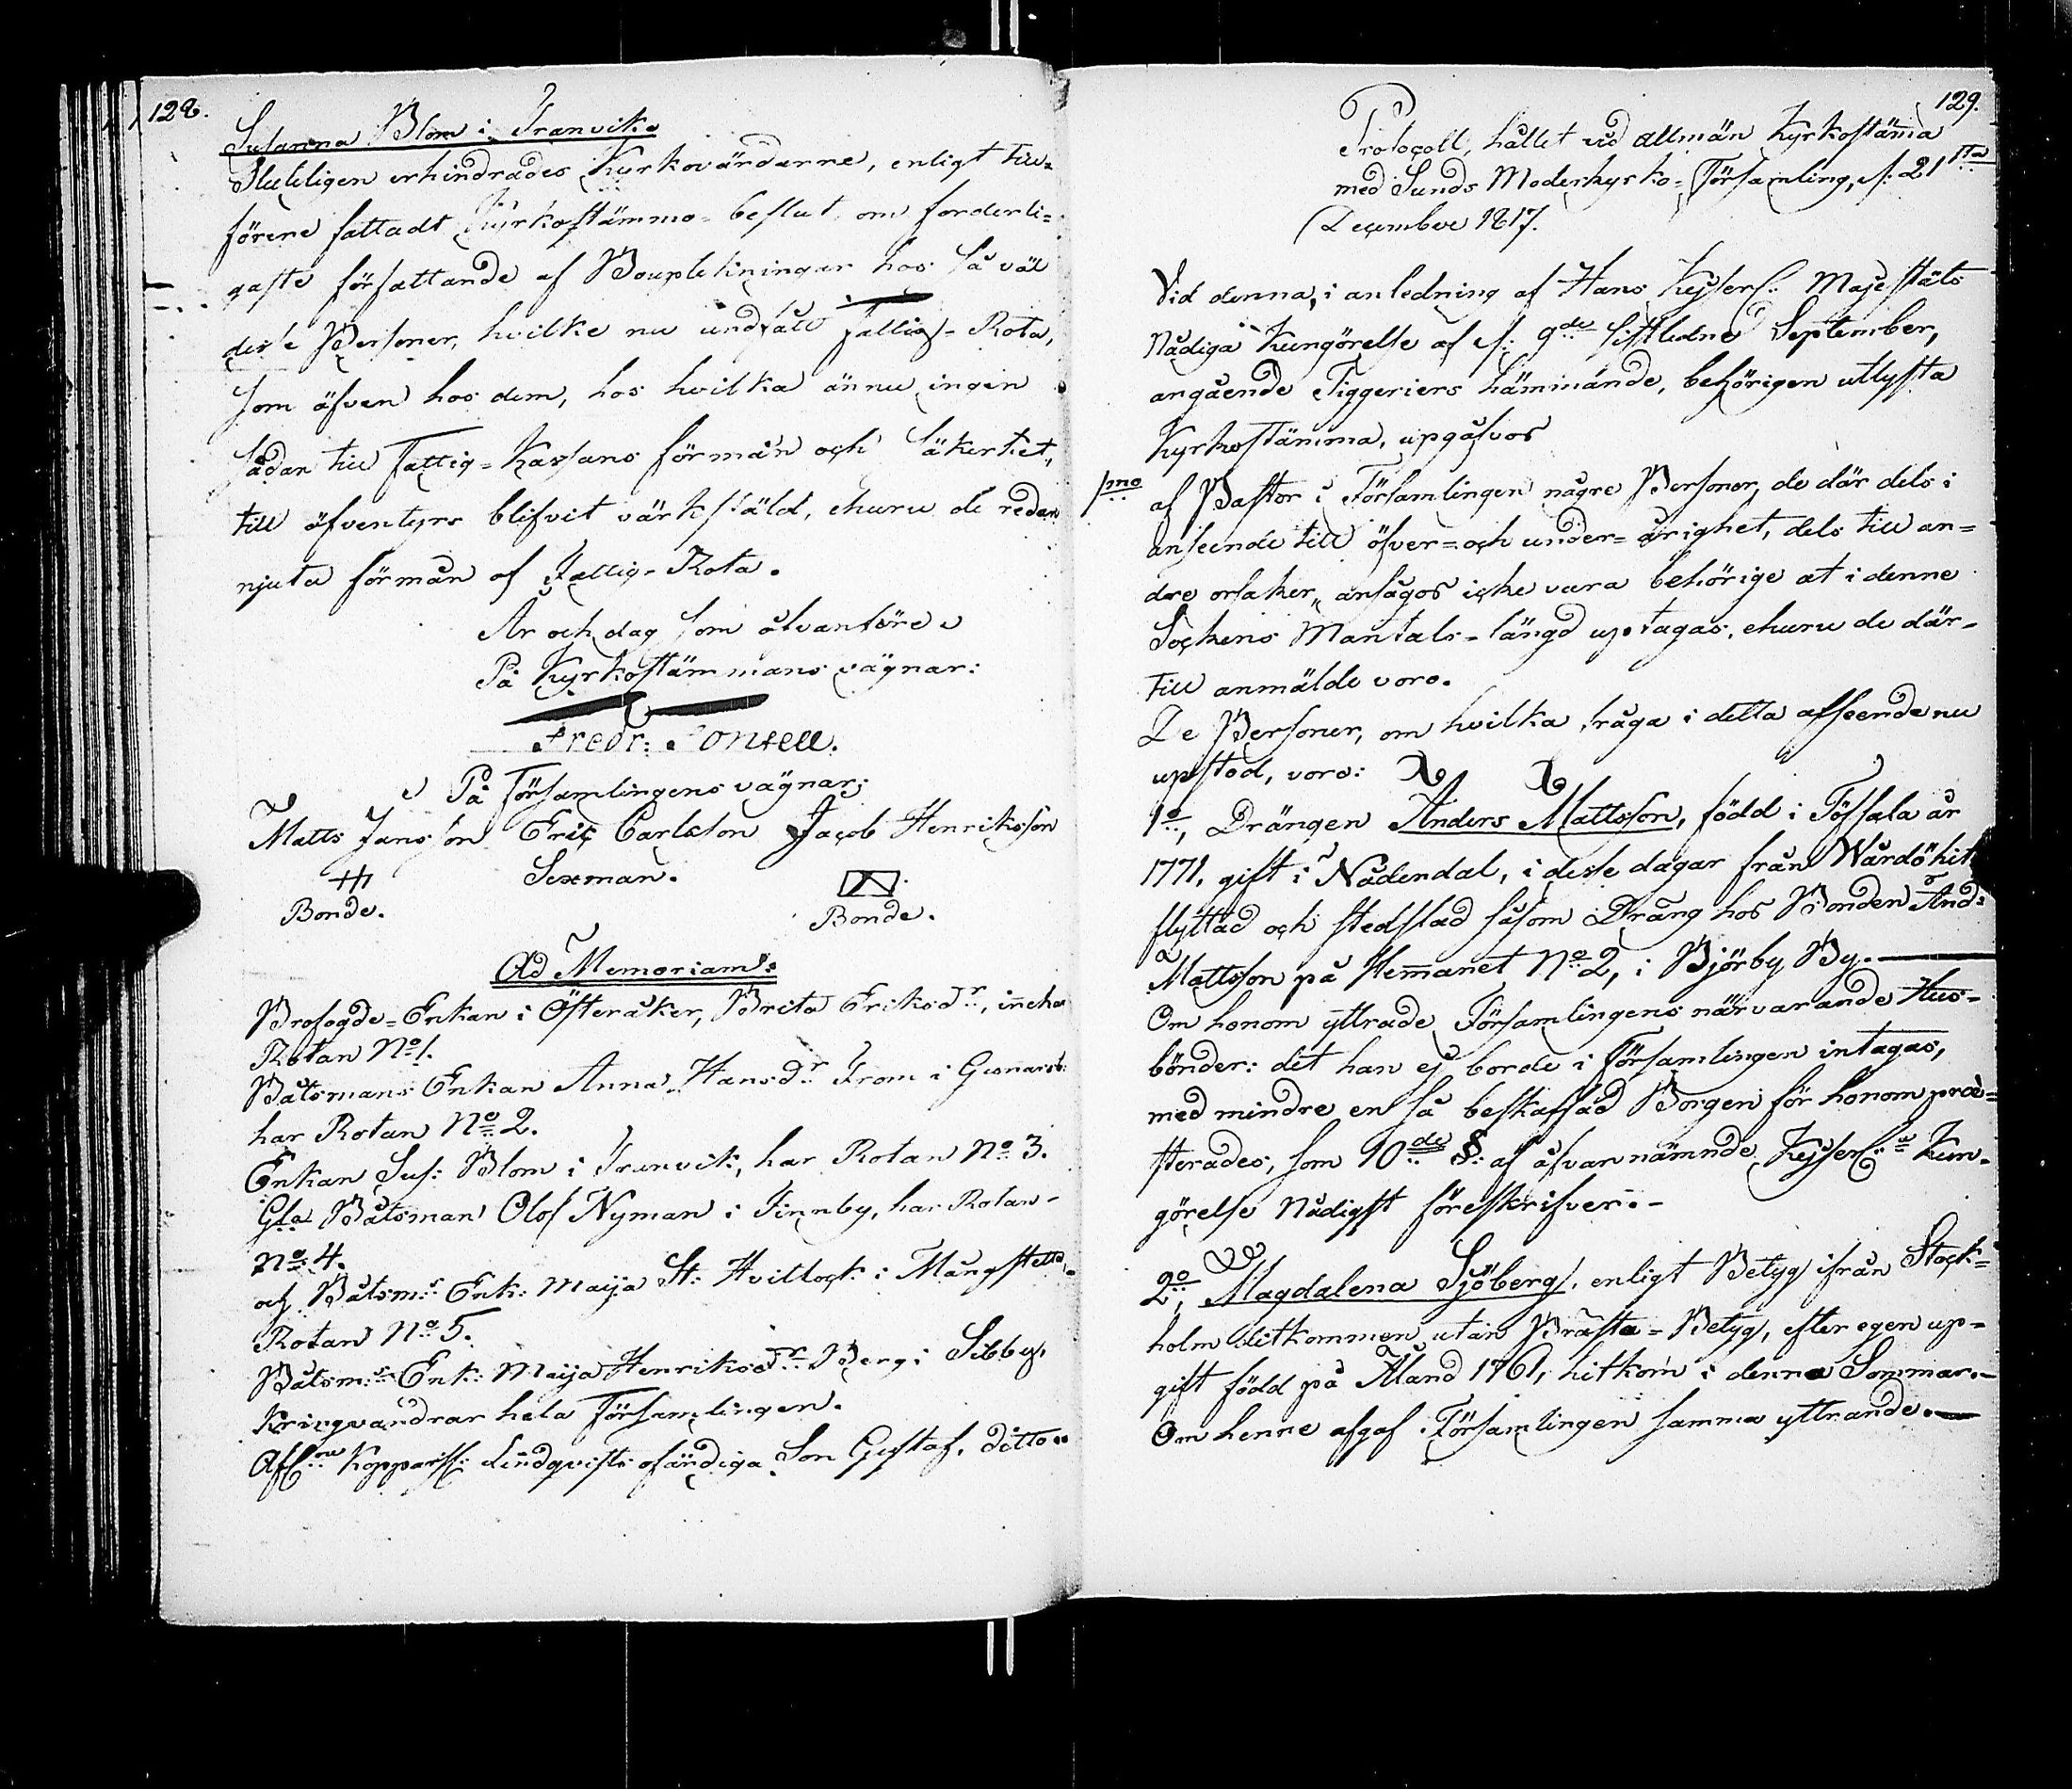 128.
Susanna Blom i Tranvik.
Sluteligen erhindrades Kyrkovärdarne, enligt till-
förene fattadt Kyrkostämmo-beslut om forderli-
gaste författande af Bouptekningar hos så väl
desse Personer, hvilke nu undfått Fattig-Rota,
som äfven hos dem, hos hvilka ännu ingen
sådan till Fattig-Kassans förmån och säkerhet,
till äfventyrs blifvit värkstäld, ehuru de redan
njuta förmån af Fattig-Rota.
År och dag som ofvanföre
På Kyrkostämmans vägnar:
Fredr: Pontell.
På Församlingens vägnar:
Matts Jansson Eric Carlsson Jacob Henriksson
Sexman.
Bonde. Bonde.
Ad Memoriam:
Brofogde-Enkan i Österåker, Brita Eriksdr, inneha
Rotan No 1.
Båtsmans Enkan Anna Hansdr From i Gunnarsb:
har Rotan No 2.
Enkan Sus: Blom i Tranvik, har Rotan No 3.
Gla Båtsman Olof Nyman i Finnby, har Rotan
No 4.
och Båtsm:s Enk: Maija St: Hvitlock i Mångstekta,
Rotan No 5.
Båtsm:s Enk: Maija Henriksdr Berg i Sibby,
kringvandrar hela Församlingen.
Afl:ne Kopparsl: Lindqvists ofärdiga Son Gustaf, ditto
129.
Protocoll, hållet vid allmän Kyrkostämma
med Sunds Moderkyrko-Församling, d. 21sta
December 1817.
Vid denna, i anledning af Hans Kejserl: Majestäts
Nådiga Kungörelse af d: 9de sistledne September,
angående Tiggeriers hämmande, behörigen utlysta
Kyrkostämma, upgåfvos
1mo af Pastor i Församlingen någre Personer, de där dels i
anseende till öfver- och under-årighet, dels till an-
dre orsaker, ansågos icke vara behörige at i denne
Sockens Mantals-längd uptagas, ehuru de där-
till anmälde voro.
De Personer, om hvilka fråga i detta afseende nu
upstod, voro:
1o, Drängen Anders Mattsson, född i Töfsala år
1771, gift i Nådendal, i desse dagar från Wårdö hit
flyttad och stedslad såsom Dräng hos Bonden And:
Mattsson på Hemanet No 2, i Björby By.
Om honom yttrade Församlingens närvarande Hus-
bönder: det han ej borde i Församlingen intagas,
med mindre en så beskaffad Borgen för honom præ-
sterades, som 10de §: af åfvannämnde Kejserl:a Kun-
görelse Nådigst föreskrifver.-
2o, Magdalena Sjöberg, enligt Betyg ifrån Stock-
holm ditkommen utan Prästa-Betyg, efter egen up-
gift född på Åland 1761, hitkom i denna Sommar.-
Om henne afgaf Församlingen samma yttrande.